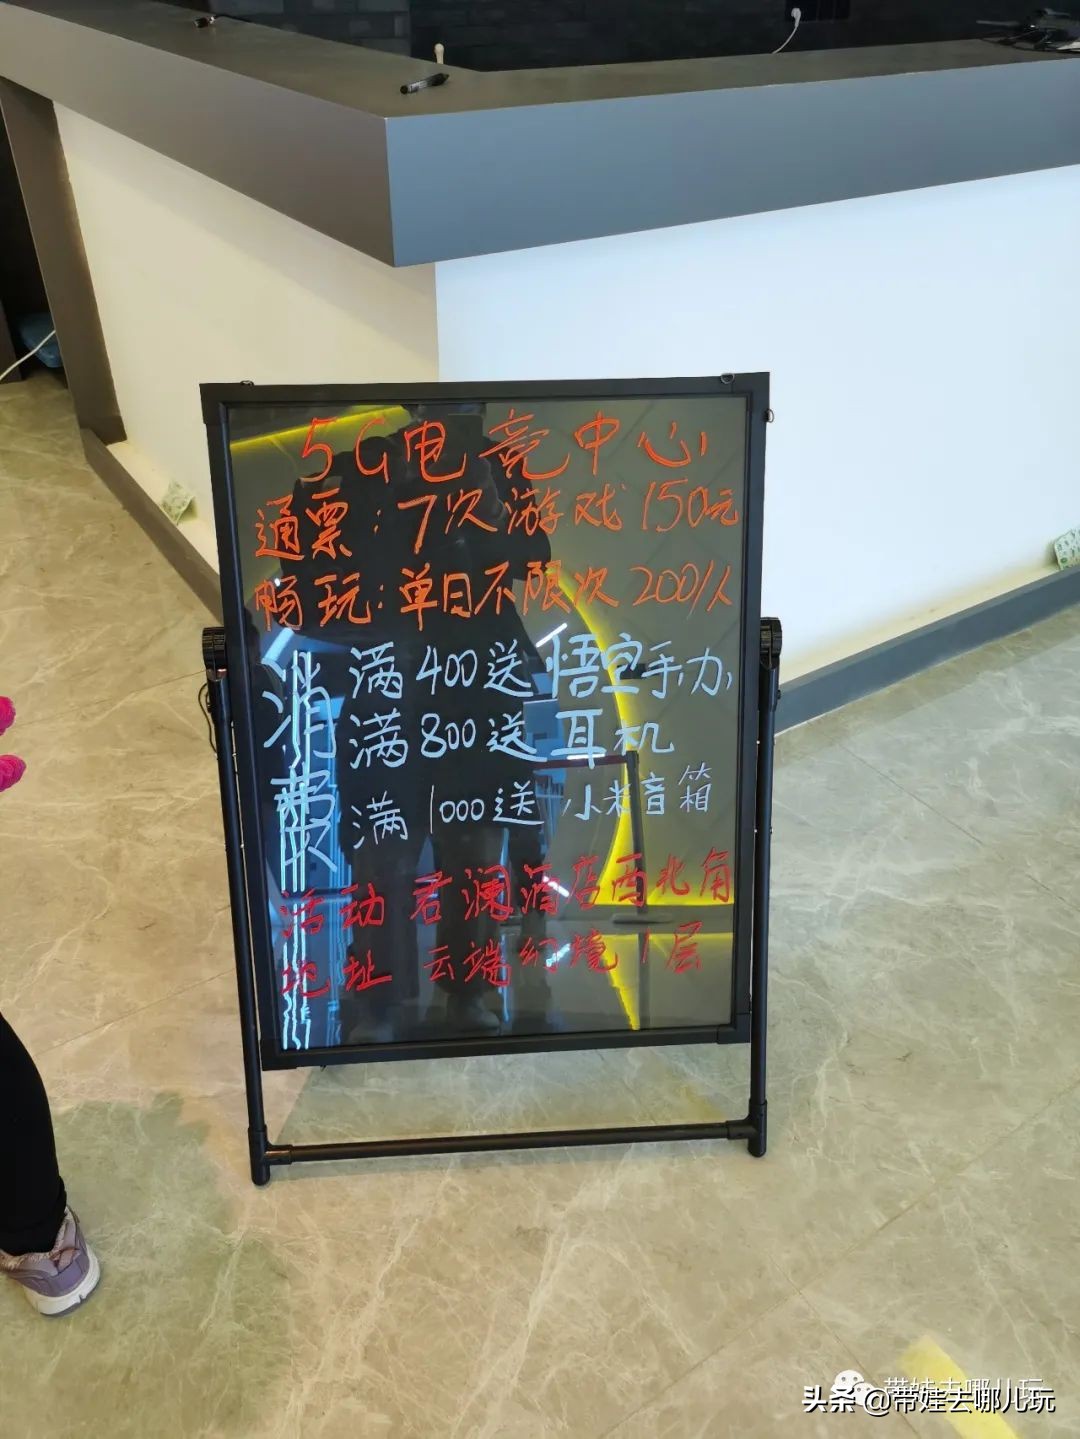 5G电竞中心
通票:7次游戏150元
畅玩:单日不限次200/人
消费
满400送悟空手办
满800送耳机
满1000送小米音箱
活动 君澜酒店西北角
地址 云端幻境1层
带娃去哪儿玩
头条@带娃去哪儿玩